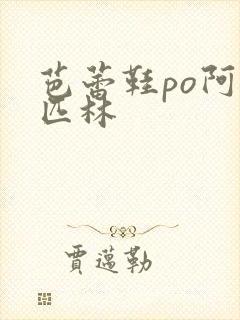 芭蕾鞋po阿
匹林
賈邁勒